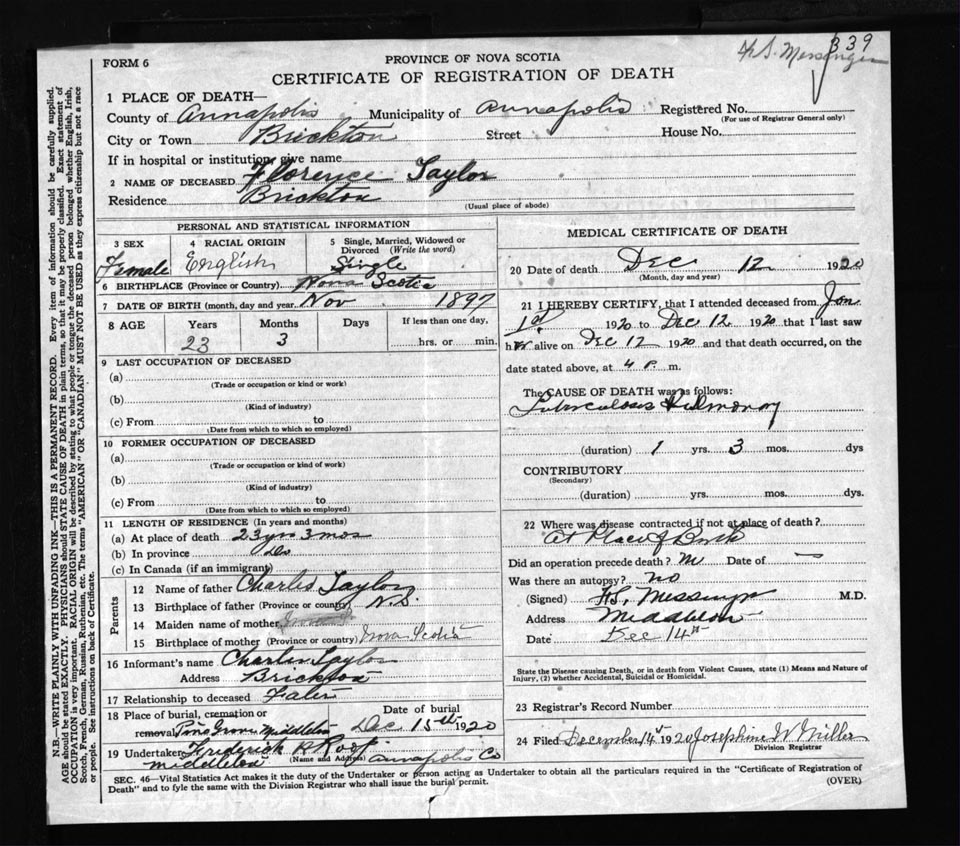 339
H. S. Messenger
FORM 6
PROVINCE OF NOVA SCOTIA
CERTIFICATE OF REGISTRATION OF DEATH
1 PLACE OF DEATH—
County of Annapolis Municipality of Annapolis Registered No.
(For use of Registrar General only)
City or Town Brickton Street House No.
If in hospital or institution, give name
2 NAME OF DECEASED Florence Taylor
Residence Brickton
(Usual place of abode)
PERSONAL AND STATISTICAL INFORMATION
3 SEX 4 RACIAL ORIGIN 5 Single, Married, Widowed or Divorced (Write the word)
Female English Single
6 BIRTHPLACE (Province or Country) Nova Scotia
7 DATE OF BIRTH (month, day and year) Nov 1897
8 AGE Years Months Days If less than one day,
23 3 hrs. or min.
9 LAST OCCUPATION OF DECEASED
(a)
(Trade or occupation or kind of work)
(b)
(Kind of industry)
(c) From to
(Date from which to which so employed)
10 FORMER OCCUPATION OF DECEASED
(a)
(Trade or occupation or kind of work)
(b)
(Kind of industry)
(c) From to
(Date from which to which so employed)
11 LENGTH OF RESIDENCE (In years and months)
(a) At place of death 23 yrs 3 mos
(b) In province Do
(c) In Canada (if an immigrant)
Parents
12 Name of father Charles Taylor
13 Birthplace of father (Province or country) N.S.
14 Maiden name of mother
15 Birthplace of mother (Province or country) Nova Scotia
16 Informant's name Charles Taylor
Address Brickton
17 Relationship to deceased Father
18 Place of burial, cremation or Date of burial
removal Pine Grove Middleton Dec 15th 1920
19 Undertaker Frederick R Roop
(Name and Address)
Middleton Annapolis Co
MEDICAL CERTIFICATE OF DEATH
20 Date of death Dec 12 1920
(Month, day and year)
21 I HEREBY CERTIFY, that I attended deceased from Jan
1st 1920 to Dec 12 1920 that I last saw
her alive on Dec 12 1920 and that death occurred, on the
date stated above, at 4 P. m.
The CAUSE OF DEATH was as follows:
Tuberculosis Pulmonary
(duration) 1 yrs. 3 mos. dys
CONTRIBUTORY
(Secondary)
(duration) yrs. mos. dys.
22 Where was disease contracted if not at place of death?
At Place of Birth
Did an operation precede death? No Date of —
Was there an autopsy? no
(Signed) H. S. Messenger M.D.
Address Middleton
Date Dec 14th
State the Disease causing Death, or in death from Violent Causes, state (1) Means and Nature of
Injury, (2) whether Accidental, Suicidal or Homicidal.
23 Registrar's Record Number
24 Filed December 14th 1920 Josephine W Miller
Division Registrar
SEC. 46—Vital Statistics Act makes it the duty of the Undertaker or person acting as Undertaker to obtain all the particulars required in the "Certificate of Registration of
Death" and to fyle the same with the Division Registrar who shall issue the burial permit.
(OVER)
N.B.—WRITE PLAINLY WITH UNFADING INK—THIS IS A PERMANENT RECORD. Every item of information should be carefully supplied.
AGE should be stated EXACTLY. PHYSICIANS should STATE CAUSE OF DEATH in plain terms, so that it may be properly classified. Exact statement of
OCCUPATION is very important. RACIAL ORIGIN will be described by stating to what people or tongue the deceased person belonged whether English, Irish,
Scotch, French, German, Russian, Ruthenian, etc. The terms "AMERICAN" OR "CANADIAN" MUST NOT BE USED as they express citizenship but not a race
or people. See instructions on back of Certificate.